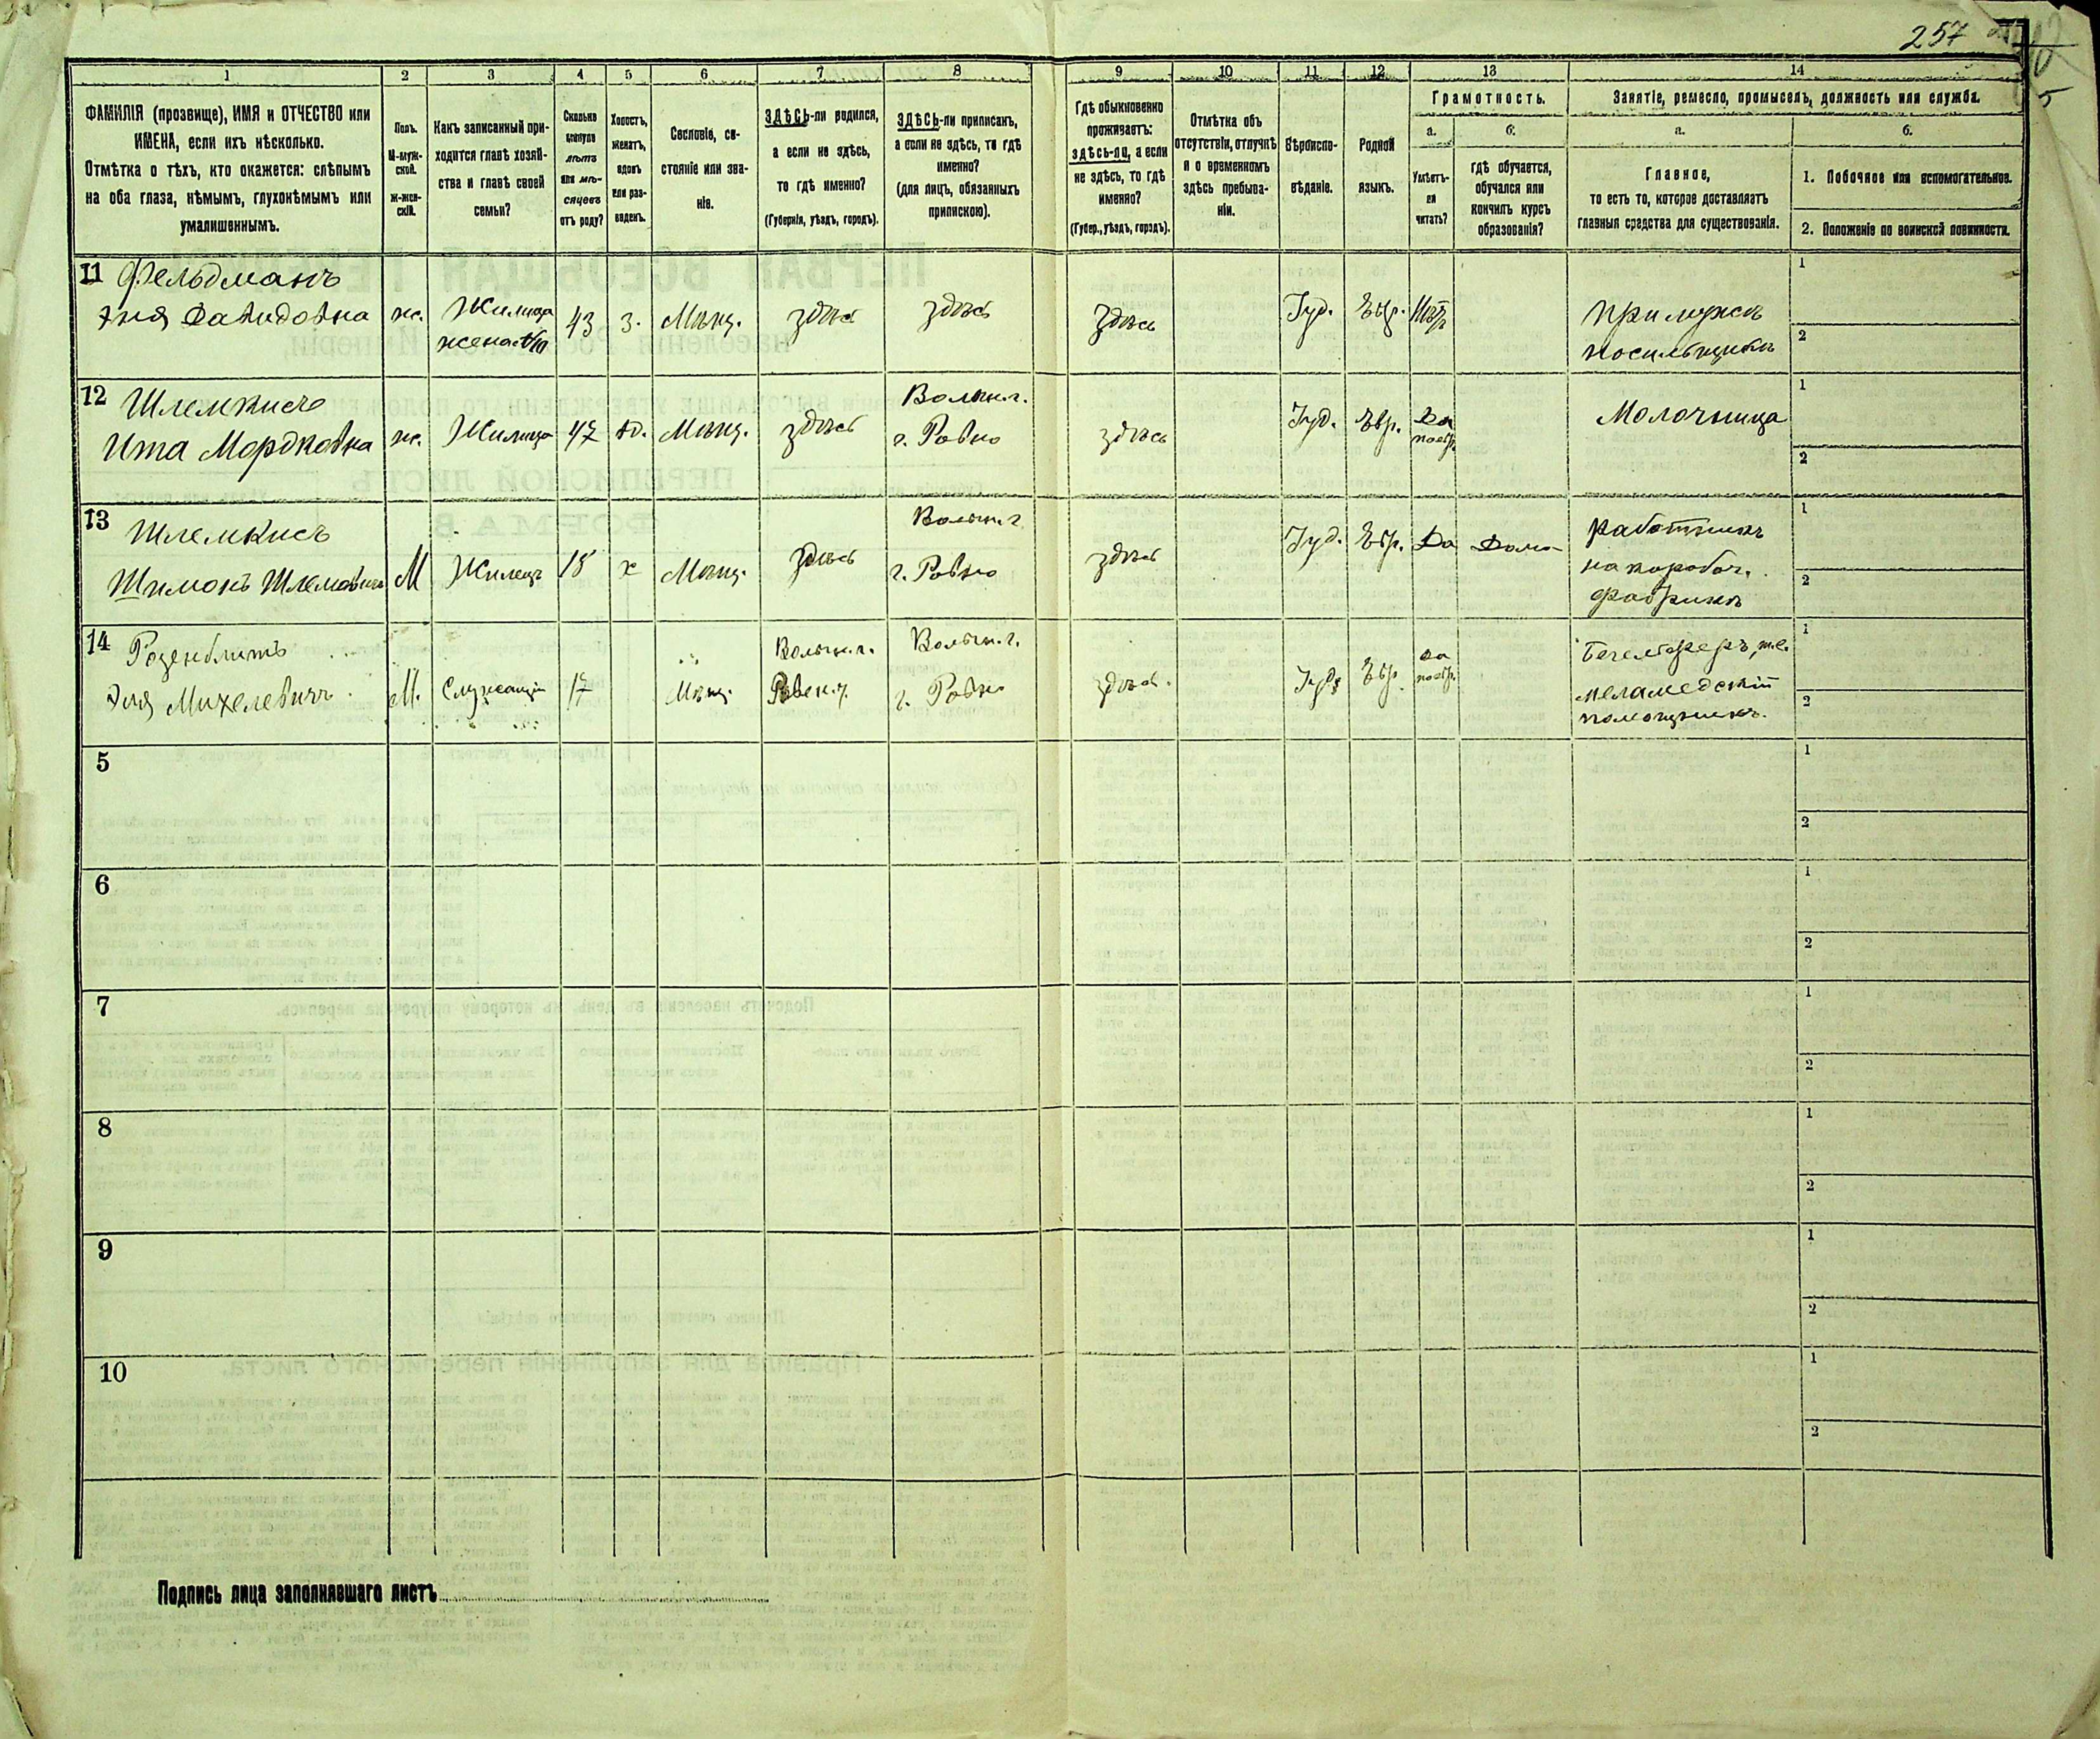 257
1 2 3 4 5 6 7 8 9 10 11 12 13 14
ФАМИЛІЯ (прозвище), ИМЯ и ОТЧЕСТВО или
ИМЕНА, если ихъ нѣсколько.
Отмѣтка о тѣхъ, кто окажется: слѣпымъ
на оба глаза, нѣмымъ, глухонѣмымъ или
умалишеннымъ.
Полъ.
М-муж-
ской.
Ж-жен-
скій.
Какъ записанный при-
ходится главѣ хозяй-
ства и главѣ своей
семьи?
Сколько
минуло
лѣтъ
или мѣ-
сяцевъ
отъ роду?
Холостъ,
женатъ,
вдовъ
или раз-
веденъ.
Сословіе, со-
стояніе или зва-
ніе.
ЗДѢСЬ-ли родился,
а если не здѣсь,
то гдѣ именно?
(Губернія, уѣздъ, городъ).
ЗДѢСЬ-ли приписанъ,
а если не здѣсь, то гдѣ
именно?
(для лицъ, обязанныхъ
припискою).
Гдѣ обыкновенно
проживаетъ:
здѣсь-ли, а если
не здѣсь, то гдѣ
именно?
(Губер., уѣздъ, городъ).
Отмѣтка объ
отсутствіи, отлучкѣ
и о временномъ
здѣсь пребыва-
ніи.
Вѣроиспо-
вѣданіе.
Родной
языкъ.
Грамотность.
а.
Умѣетъ-
ли
читать?
б.
гдѣ обучается,
обучался или
кончилъ курсъ
образованія?
Занятіе, ремесло, промыселъ, должность или служба.
а.
Главное,
то есть то, которое доставляетъ
главныя средства для существованія.
б.
1. Побочное или вспомогательное.
2. Положеніе по воинской повинности.
11 Фельдманъ
Давидовна ж. Жилица жена 43 з. Мѣщ. здѣсь здѣсь здѣсь Іуд. Евр.
при мужѣ
носильщикѣ
1
2
12 Шлемкисъ
Ита Мордковна ж. Жилица 47 Мѣщ. здѣсь Волын. г. г. Ровно здѣсь Іуд. Евр. Да по евр. Молочница
1
2
13 Шлемкисъ
Шимонъ Шлемовичъ М Жилецъ 18 х Мѣщ. здѣсь Волын. г. г. Ровно здѣсь Іуд. Евр. Да Дома
работникъ
на коробоч.
фабрикѣ
1
2
14 Розенблитъ
Эля Михелевичъ М. Служащій 17 Мѣщ. Волын. г. Ровен. у. Волын. г. г. Ровно здѣсь. Іуд. Евр. да по евр.
Бегельферъ, т.е.
меламедскій
помощникъ.
1
2
5 1
2
6 1
2
7 1
2
8 1
2
9 1
2
10 1
2
Подпись лица заполнявшаго листъ